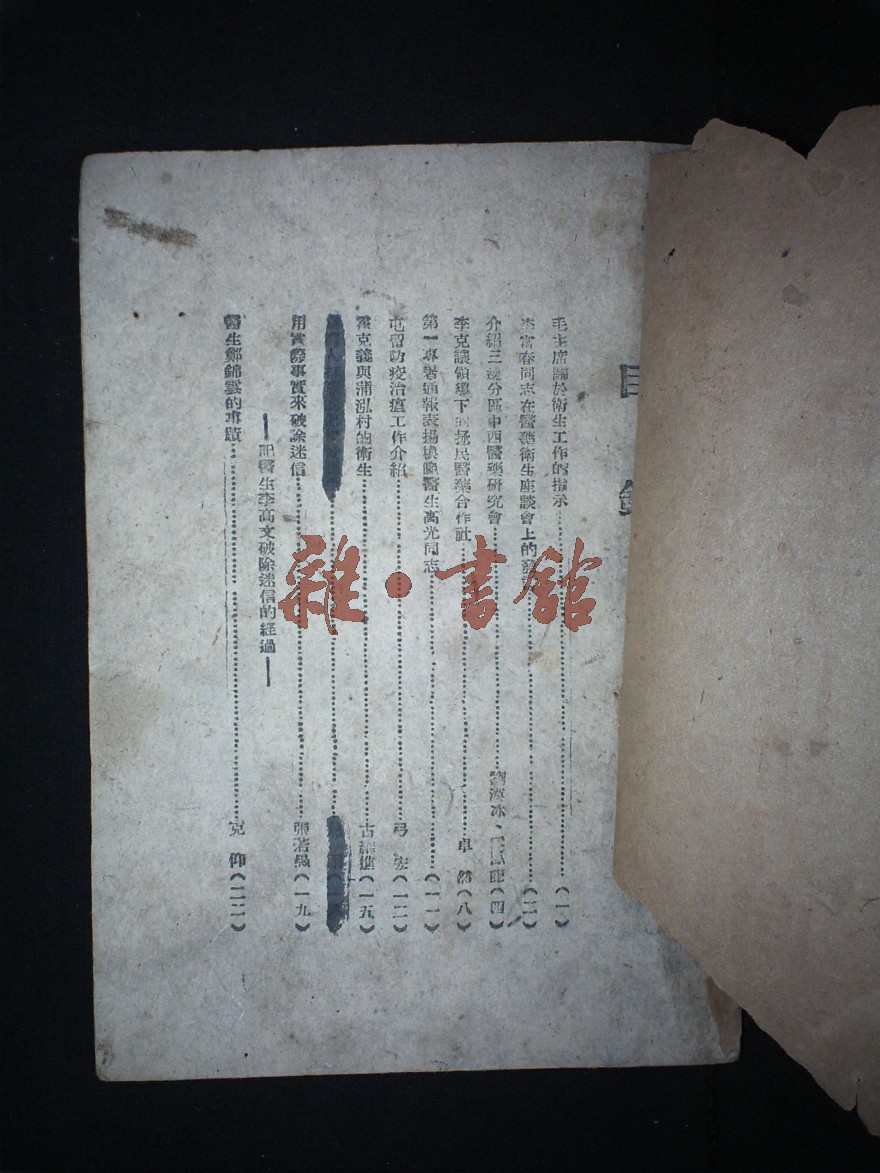 目錄
毛主席關於衛生工作的指示(一)
李富春同志在醫藥衛生座談會上的(二)
介紹三邊分區中西醫藥研究會 劉漢冰、(四)
李克讓領導下的拯民醫藥合作社 卓然(八)
第一專署通報表揚模範醫生高光同志(一一)
屯留防疫治瘟工作介紹 弓(一二)
霍克義與蒲泓村的衛生 古維進(一五)
用實際事實來破除迷信 張若愚(一九)
——記醫生李高文破除迷信的經過——
醫生鄭錦雲的事蹟 克仰(二二)
雜·書館